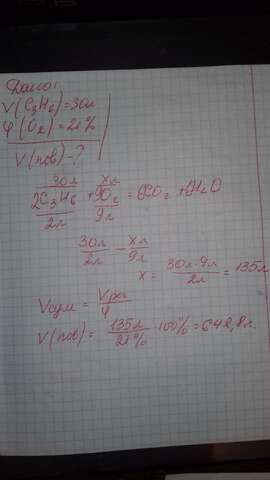 Дано:
V(C₃H₆)=30л
φ(O₂)=21%
V(пов)-?
30л xл
2C₃H₆ + 9O₂ = 6CO₂ + 6H₂O
2л 9л
30л/2л - xл/9л
x = 30л·9л/2л = 135л
Vсум = Vреч/φ
V(пов) = 135л/21% · 100% = 642,8л